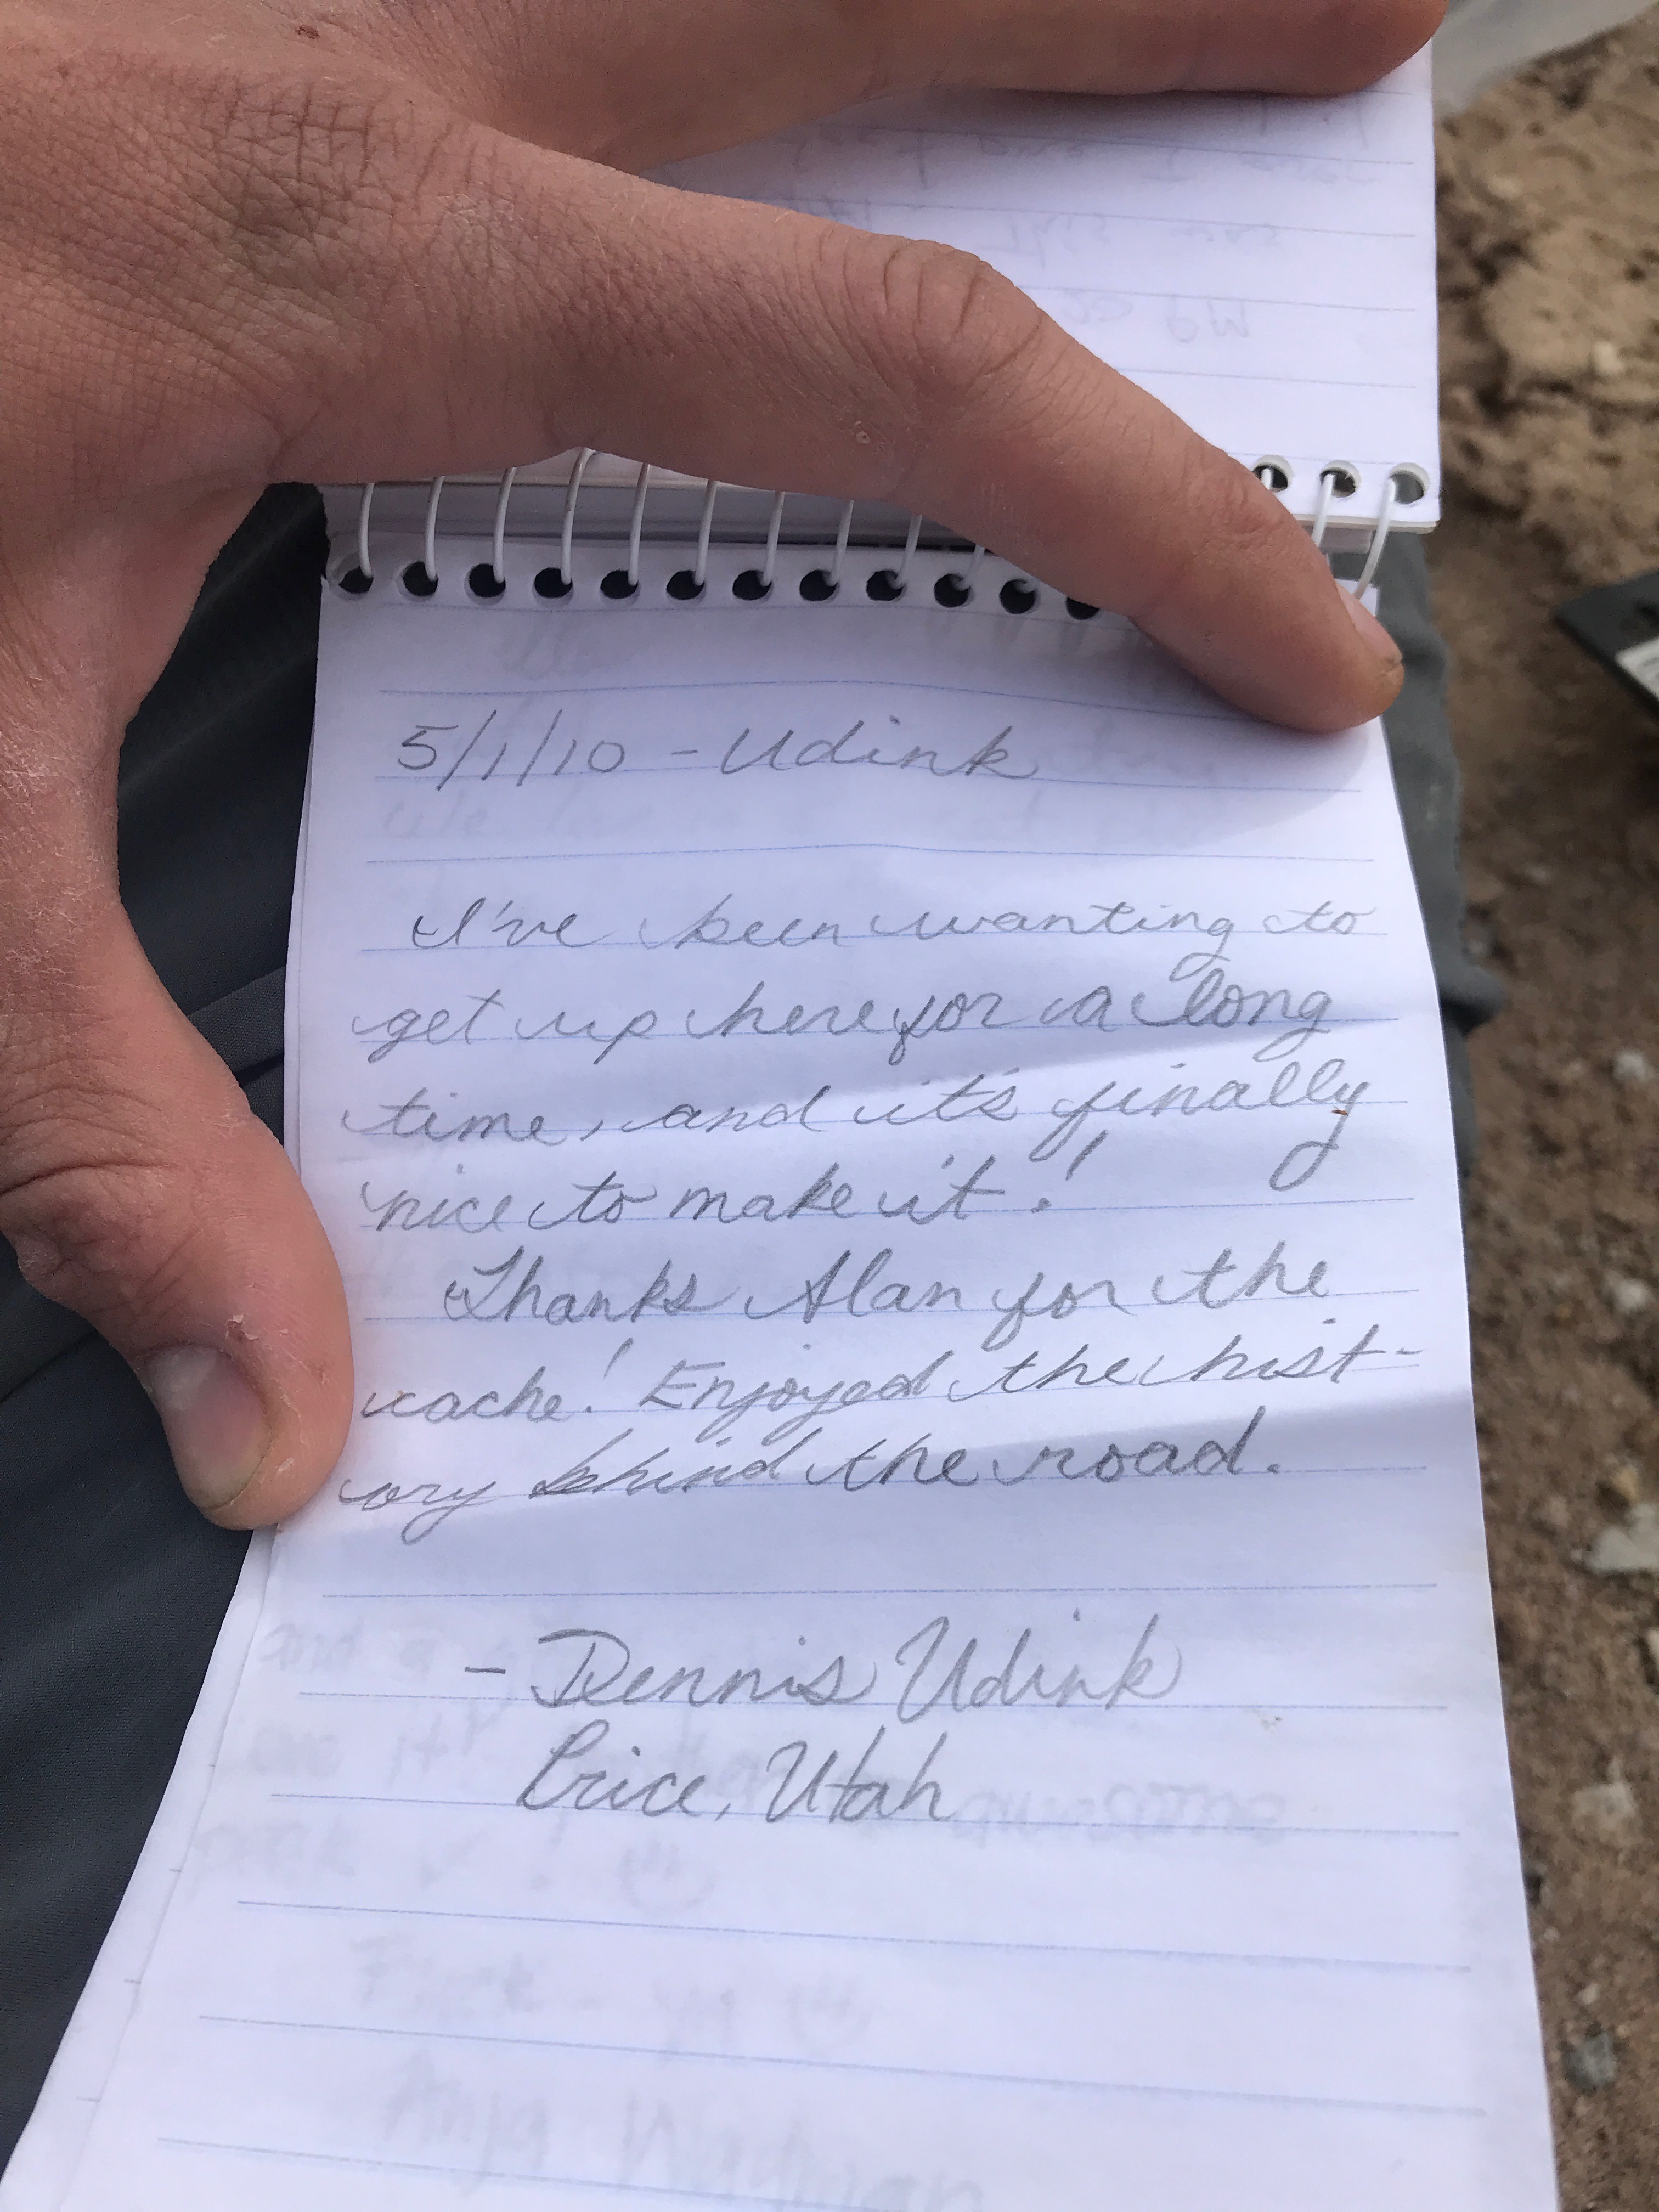 5/1/10 - Udink
I've been wanting to
get up here for a long
time, and it's finally
nice to make it!
Thanks Alan for the
cache! Enjoyed the hist-
ory behind the road.
- Dennis Udink
Price, Utah